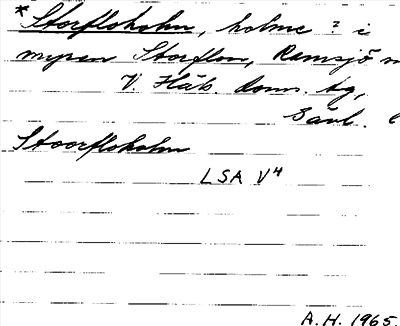 *Storfloholm, holme? i
myren Storflon, Ramsjö
V. Häls. doms. tg,
Gävl.
Stoorfloholm
LSA V4
A.H. 1965.